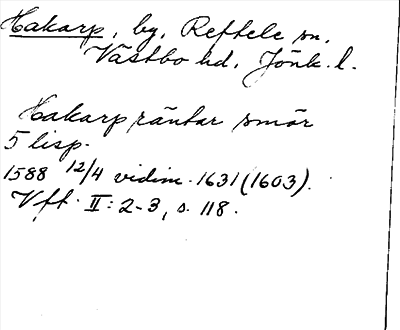 Hakarp, by, Reftele sn.
Västbo hd. Jönk. l.
Hakarp räntar smör
5 lisp.
1588 12/4 vidim. 1631 (1603).
Vft. II: 2-3, s. 118.